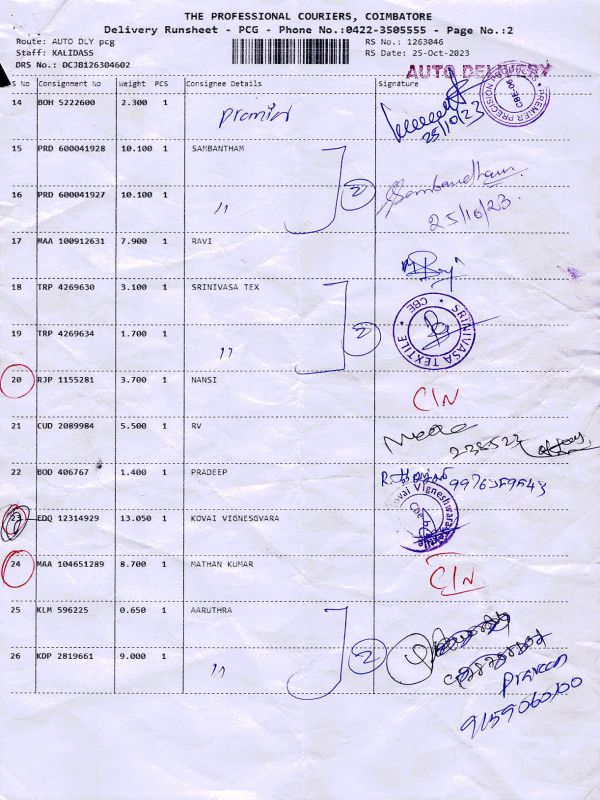 THE PROFESSIONAL COURIERS, COIMBATORE
Delivery Runsheet - PCG - Phone No.:0422-3505555 - Page No.:2
Route: AUTO DLY pcg RS No.: 1263046
Staff: KALIDASS RS Date: 25-Oct-2023
DRS No.: DCJB126304602
AUTO DELIVERY
S No Consignment No Weight PCS Consignee Details Signature
14 BOH 5222600 2.300 1 Premier 25/10/23
PREMIER PRECISION CBE-04
15 PRD 600041928 10.100 1 SAMBANTHAM
16 PRD 600041927 10.100 1 " 2 Sambandham
25/10/23.
17 MAA 100912631 7.900 1 RAVI
18 TRP 4269630 3.100 1 SRINIVASA TEX
SRINIVASA TEXTILE CBE
19 TRP 4269634 1.700 1 " 2
20 RJP 1155281 3.700 1 NANSI C/N
21 CUD 2089984 5.500 1 RV
22 BOD 406767 1.400 1 PRADEEP
23 EDQ 12314929 13.050 1 KOVAI VIGNESGVARA
Kovai Vigneshwara
24 MAA 104651289 8.700 1 MATHAN KUMAR C/N
25 KLM 596225 0.650 1 AARUTHRA
26 KDP 2819661 9.000 1 " 2
Praveen